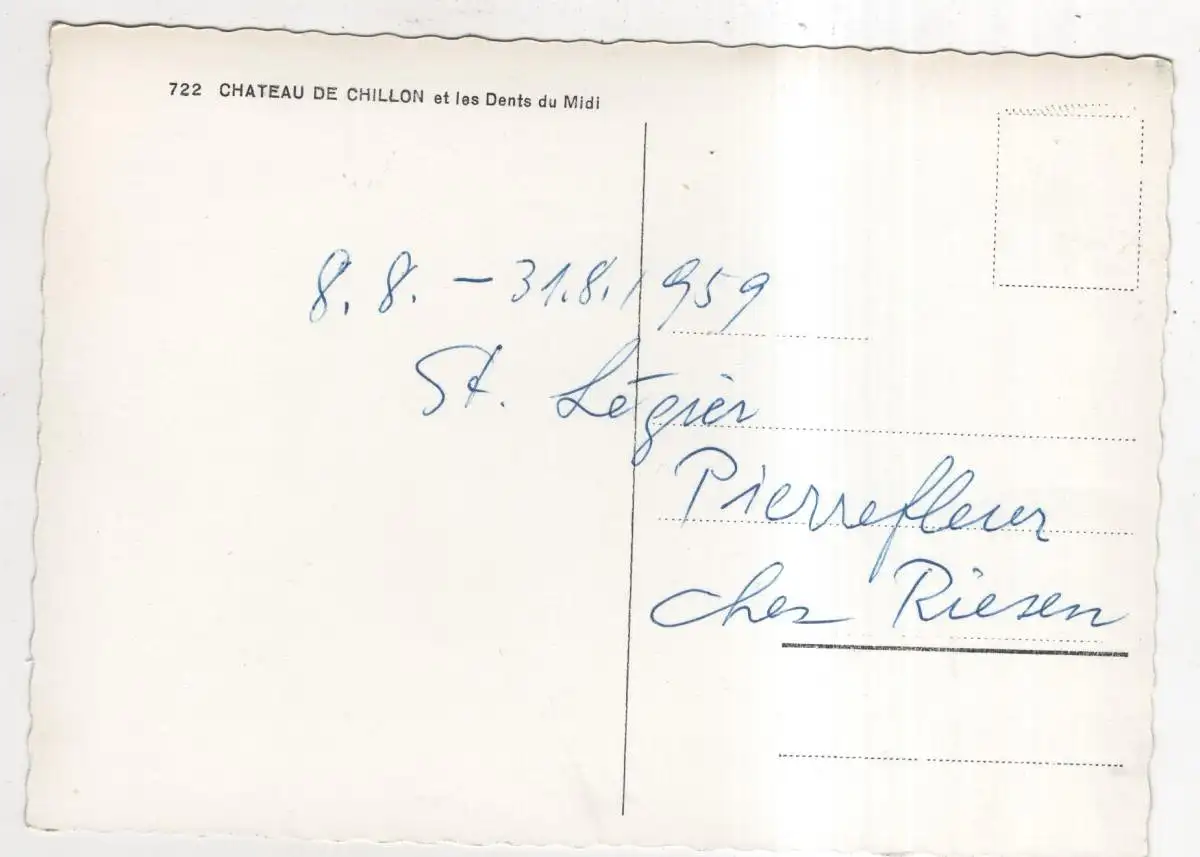 722 CHATEAU DE CHILLON et les Dents du Midi
8. 8. – 31.8.1959
St. Légier
Pierrefleur
chez Riesen